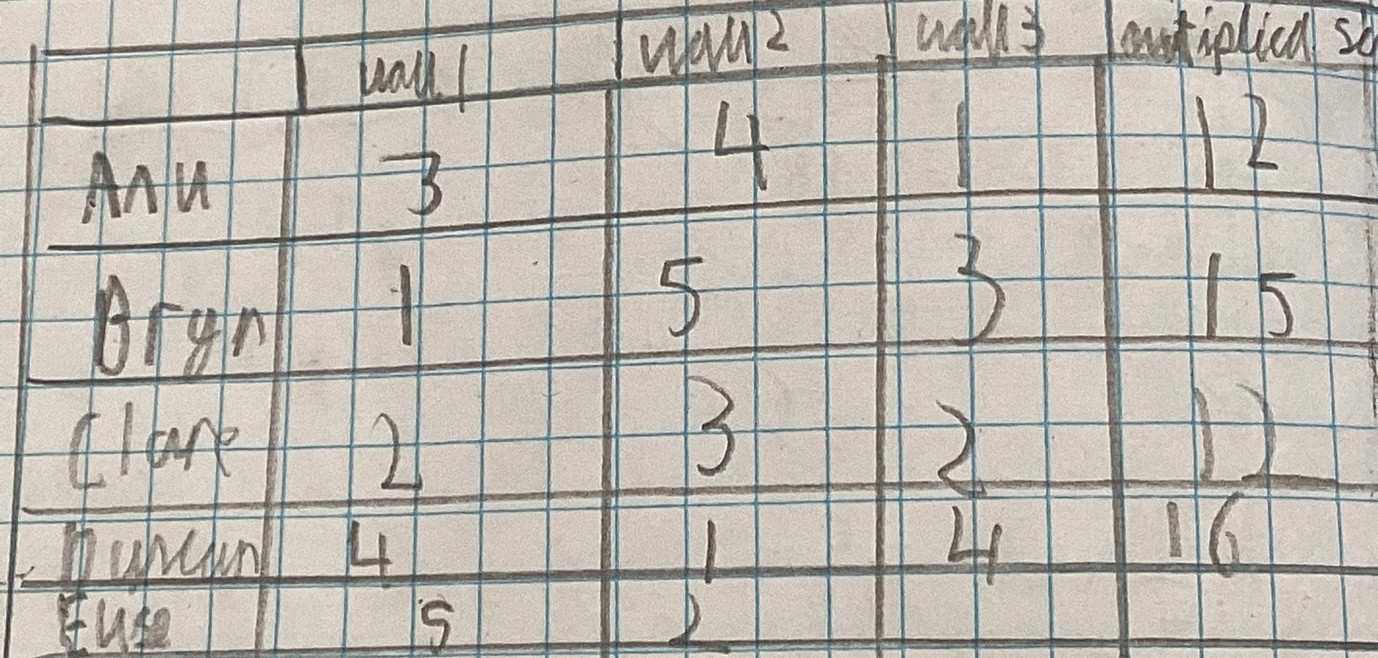 wall 1 wall 2 wall 3 multiplied sc
Anu 3 4 1 12
Bryn 1 5 3 15
Clare 2 3 2 12
Duncan 4 1 4 16
5 2